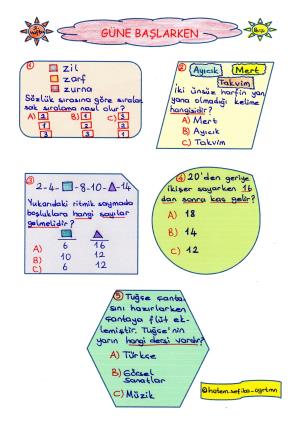 GÜNE BAŞLARKEN
1
zil
zarf
zurna
Sözlük sırasına göre sıralar-
sak sıralama nasıl olur?
A) B) C)
2
Ayıcık Mert
Takvim
iki ünsüz harfin yan
yana olmadığı kelime
hangisidir?
A) Mert
B) Ayıcık
C) Takvim
3
2-4- -8-10- -14
Yukarıdaki ritmik saymada
boşluklara hangi sayılar
gelmelidir?
A) 6 16
B) 10 12
C) 6 12
4 20'den geriye
ikişer sayarken 16
dan sonra kaç gelir?
A) 18
B) 14
C) 12
5 Tuğçe çanta-
sını hazırlarken
çantaya flüt ek-
lemiştir. Tuğçe'nin
yarın hangi dersi vardır?
A) Türkçe
B) Görsel
sanatlar
C) Müzik